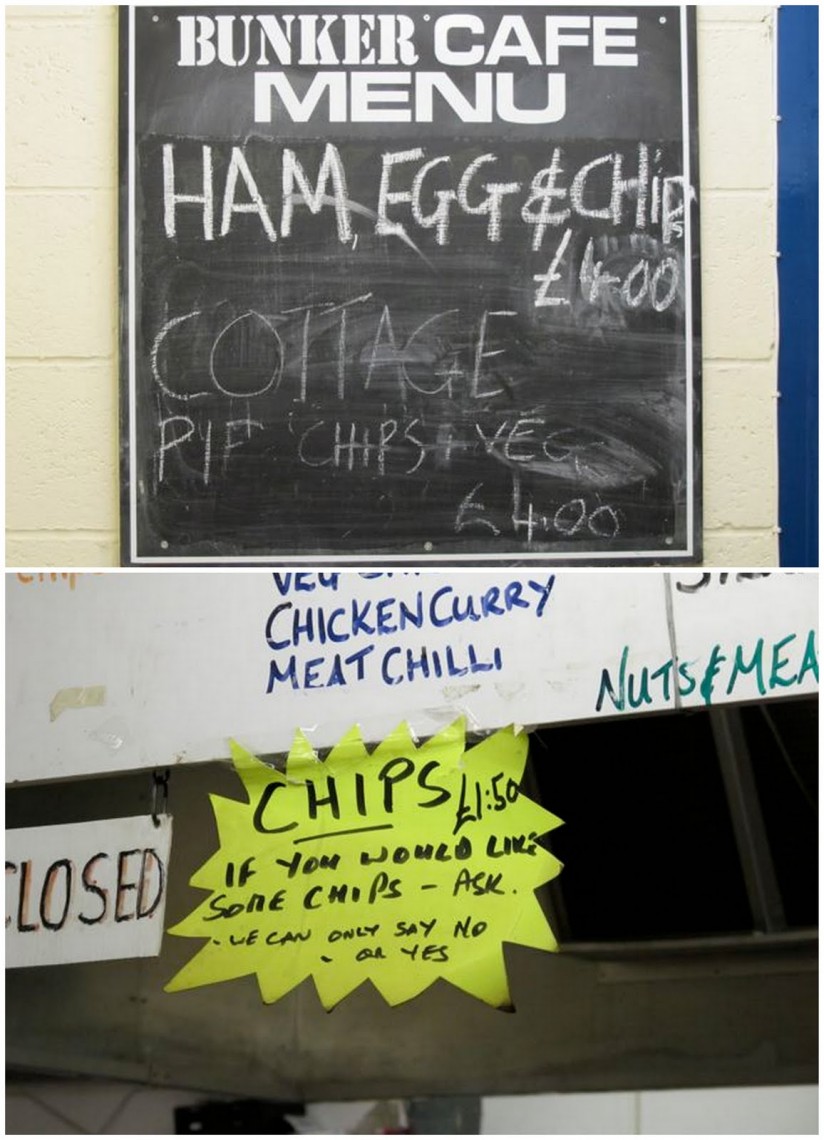 BUNKER CAFE
MENU
HAM, EGG & CHIPS
£4.00
COTTAGE
PIE CHIPS + VEG
£4.00
CHICKEN CURRY
MEAT CHILLI
NUTS & MEA
CLOSED
CHIPS £1:50
IF YOU WOULD LIKE
SOME CHIPS - ASK.
- WE CAN ONLY SAY NO
- OR YES